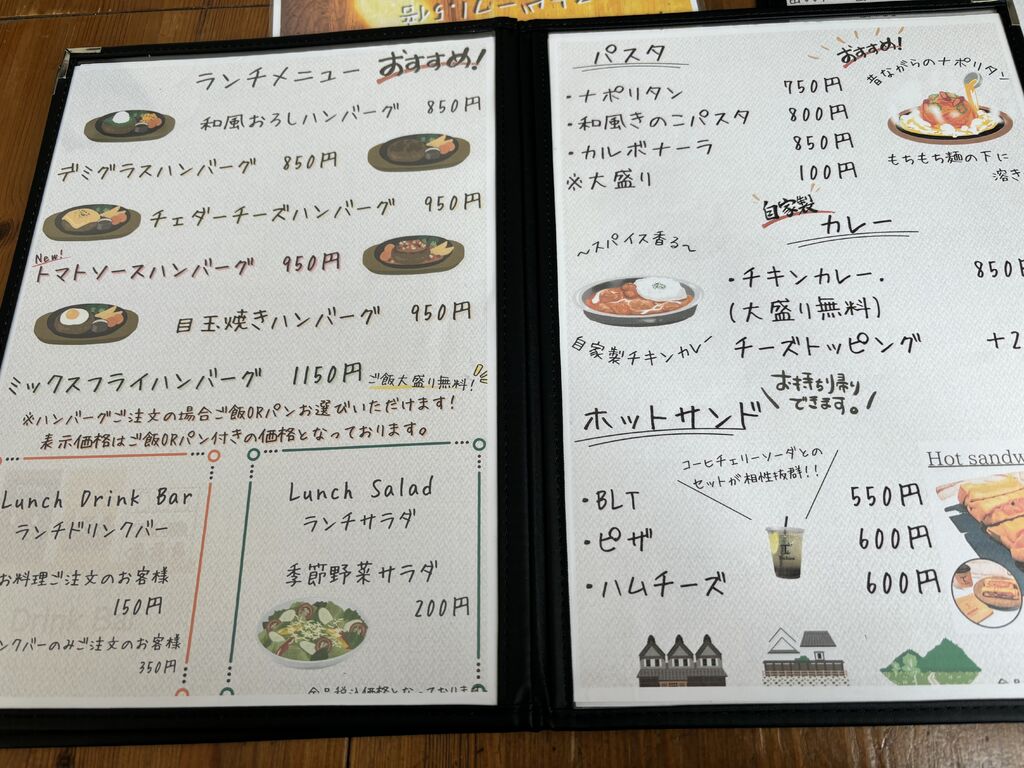 ストビーフ1.5倍
ランチメニュー おすすめ!
和風おろしハンバーグ 850円
デミグラスハンバーグ 850円
チェダーチーズハンバーグ 950円
New!
トマトソースハンバーグ 950円
目玉焼きハンバーグ 950円
ミックスフライハンバーグ 1150円 ご飯大盛り無料!
※ハンバーグご注文の場合ご飯ORパンお選びいただけます!
表示価格はご飯ORパン付きの価格となっております。
Lunch Drink Bar
ランチドリンクバー
お料理ご注文のお客様
150円
ンクバーのみご注文のお客様
350円
Lunch Salad
ランチサラダ
季節野菜サラダ
200円
全品税込価格となっておりま
パスタ
おすすめ!
昔ながらのナポリタン
・ナポリタン 750円
・和風きのこパスタ 800円
・カルボナーラ 850円
※大盛り 100円
もちもち麺の下に
溶き
自家製
カレー
~スパイス香る~
・チキンカレー. 850円
(大盛り無料)
チーズトッピング +2
自家製チキンカレー
お持ち帰り
できます。
ホットサンド
コーヒチェリーソーダとの
セットが相性抜群!!
Hot sandw
・BLT 550円
・ピザ 600円
・ハムチーズ 600円